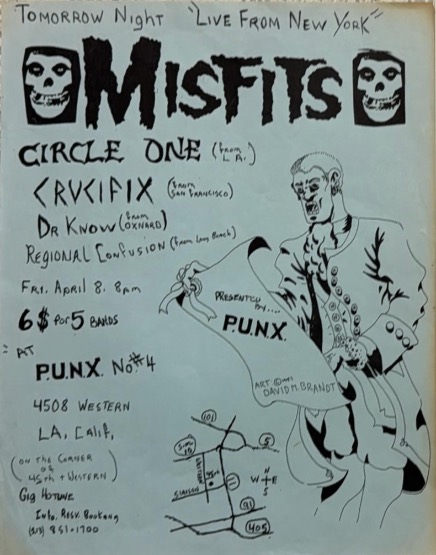 TOMORROW NIGHT "LIVE FROM NEW YORK"
MISFITS
CIRCLE ONE (FROM L.A.)
CRUCIFIX (FROM SAN FRANCISCO)
DR KNOW (FROM OXNARD)
REGIONAL CONFUSION (from Long Beach)
FRI. APRIL 8. 8pm
6$ For 5 BANDS
AT
P.U.N.X. No#4
4508 WESTERN
LA, Calif,
(ON THE CORNER
OF
45th + WESTERN)
Gig HOTLINE
Info. Resv. Booking
851-1700
PRESENTED
BY....
P.U.N.X.
ART ©
DAVID M. BRANDT
101
5
10
WESTERN
45th
11
SLAUSON
91
405
N
W E
S